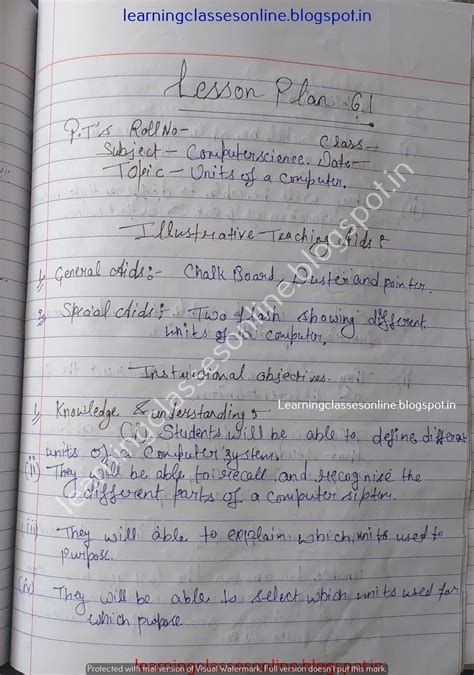 learningclassesonline.blogspot.in
Lesson Plan 6.1
P.T's Roll No-
Class-
Subject - Computerscience. Date-
Topic - Units of a computer.
Illustrative Teaching Aids:
1. General Aids:- Chalk Board, Duster and pointer.
2. Special Aids:- Two flash showing different
units of a computer.
Instructional objectives.
1. Knowledge & understanding:-
(i) Students will be able to define different
units of a Computer system.
(ii) They will be able to recall and recognise the
different parts of a computer
(iii) They will able to explain which units used to
purpose.
(iv) They will be able to select which units used for
which purpose
Learningclassesonline.blogspot.in
learningclassesonline.blogspot.in
Protected with trial version of Visual Watermark. Full version doesn't put this mark.
learningclassesonline.blogspot.in